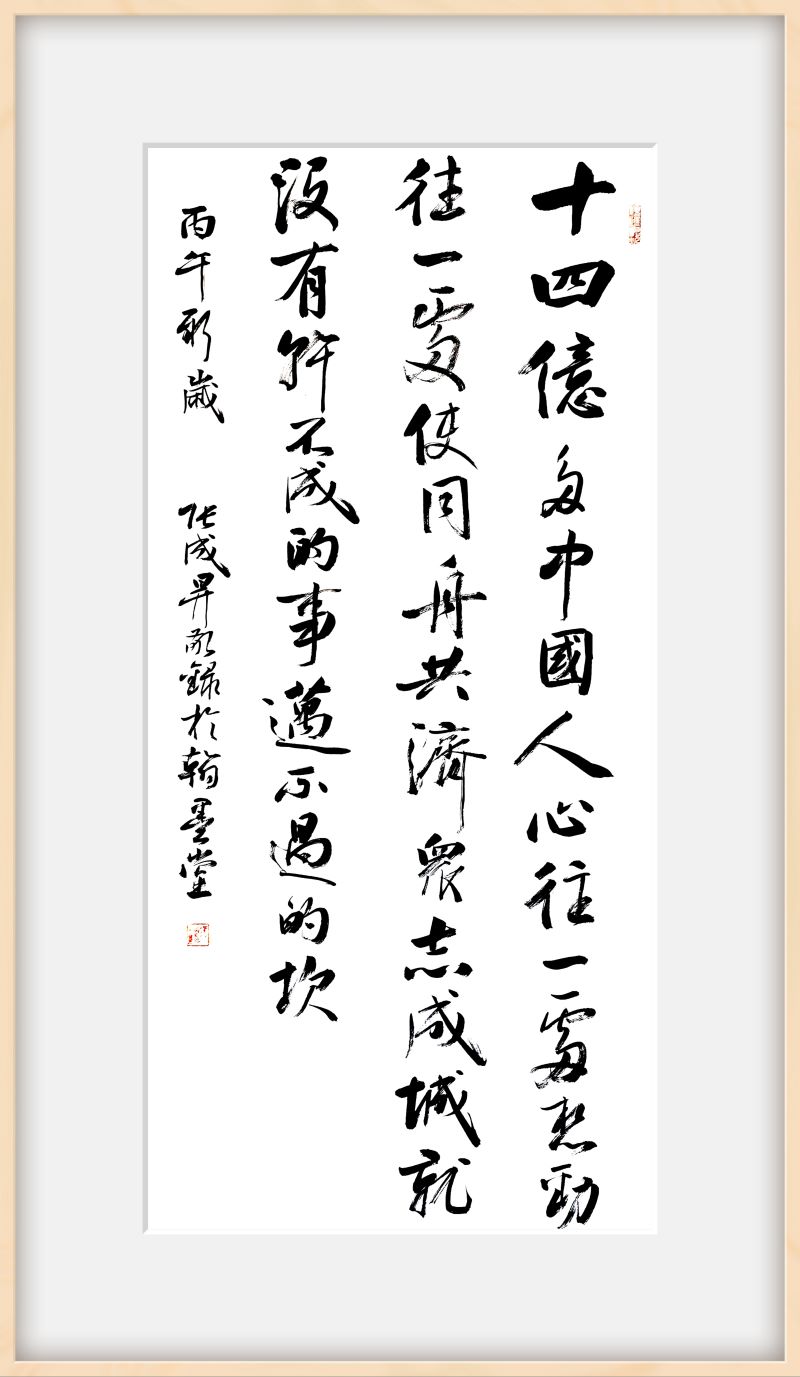 十四億多中國人心往一處想勁
往一處使同舟共濟衆志成城就
没有幹不成的事邁不過的坎
丙午新歲 張成昇敬錄於翰墨堂